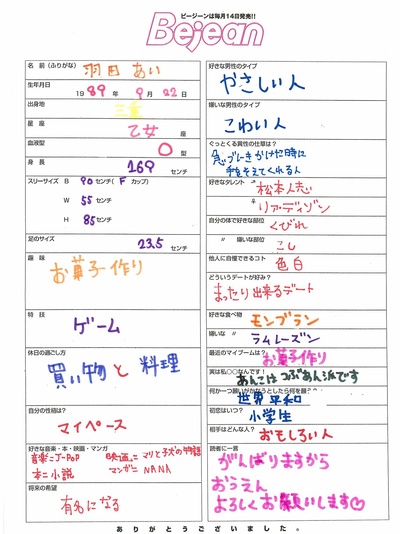 ビージーンは毎月14日発売!!
Bejean
名前(ふりがな) 羽田 あい
生年月日 1989年 9月 22日
出身地 三重
星座 乙女 座
血液型 O 型
身長 169 センチ
スリーサイズ B 90 センチ( F カップ)
W 55 センチ
H 85 センチ
足のサイズ 23.5 センチ
趣味
お菓子作り
特技
ゲーム
休日の過ごし方
買い物と料理
自分の性格は?
マイペース
好きな音楽・本・映画・マンガ
音楽=J-POP 映画=マリと子犬の物語
本=小説 マンガ=NANA
将来の希望
有名になる
好きな男性のタイプ
やさしい人
嫌いな男性のタイプ
こわい人
ぐっとくる異性の仕草は?
急ブレーキかけた時に
手をそえてくれる人
好きなタレント
松本人志
リア・ディゾン
自分の体で好きな部位
くびれ
〃 嫌いな部位
こし
他人に自慢できるコト
色白
どういうデートが好み?
まったり出来るデート
好きな食べ物
モンブラン
嫌いな 〃
ラムレーズン
最近のマイブームは?
お菓子作り
実は私○○なんです!
あんこはつぶあん派です
世界平和
初恋はいつ?
小学生
相手はどんな人?
おもしろい人
読者に一言
がんばりますから
おうえん
よろしくお願いします♡
ありがとうございました。